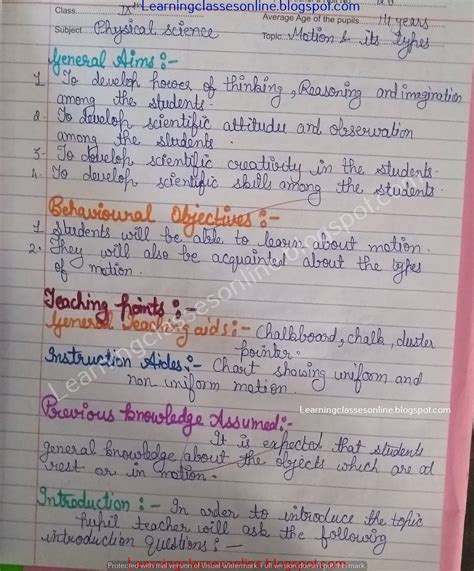 Learningclassesonline.blogspot.com
Class IXth
Average Age of the pupils 14 years
Subject Physical science Topic Motion & its types
General Aims :-
1. To develop power of thinking, Reasoning and imagination
among the students.
2. To develop scientific attitudu and observation
among the students
3. To develop scientific creativity in the students.
4. To develop scientific skills among the students
Behavioural Objectives :-
1. Students will be able to learn about motion.
2. They will also be acquainted about the types
of motion.
Teaching points :-
General Teaching aids :- Chalkboard, chalk, duster
pointer.
Instruction Aides :- Chart showing uniform and
non uniform motion
Learningclassesonline.blogspot.com
Previous knowledge Assumed :-
It is expected that students
general knowledge about the objects which are ad
rest or in motion.
Introduction :- In order to introduce the topic
pupil teacher will ask the following
introduction Questions :-
Learningclassesonline.blogspot.com
Protected with trial version of Visual Watermark. Full version doesn't put this mark.